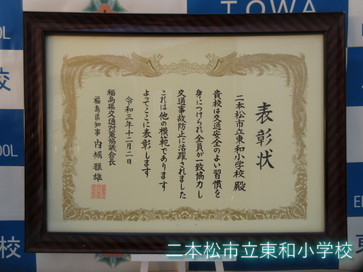 TOWA
表彰状
二本松市立東和小学校 殿
貴校は交通安全のよい習慣を
身につけられ全員が一致協力し
交通事故防止に活躍されました
これは他の模範であります
よってここに表彰します
令和三年十二月二日
福島県交通対策協議会会長
福島県知事 内堀雅雄
二本松市立東和小学校